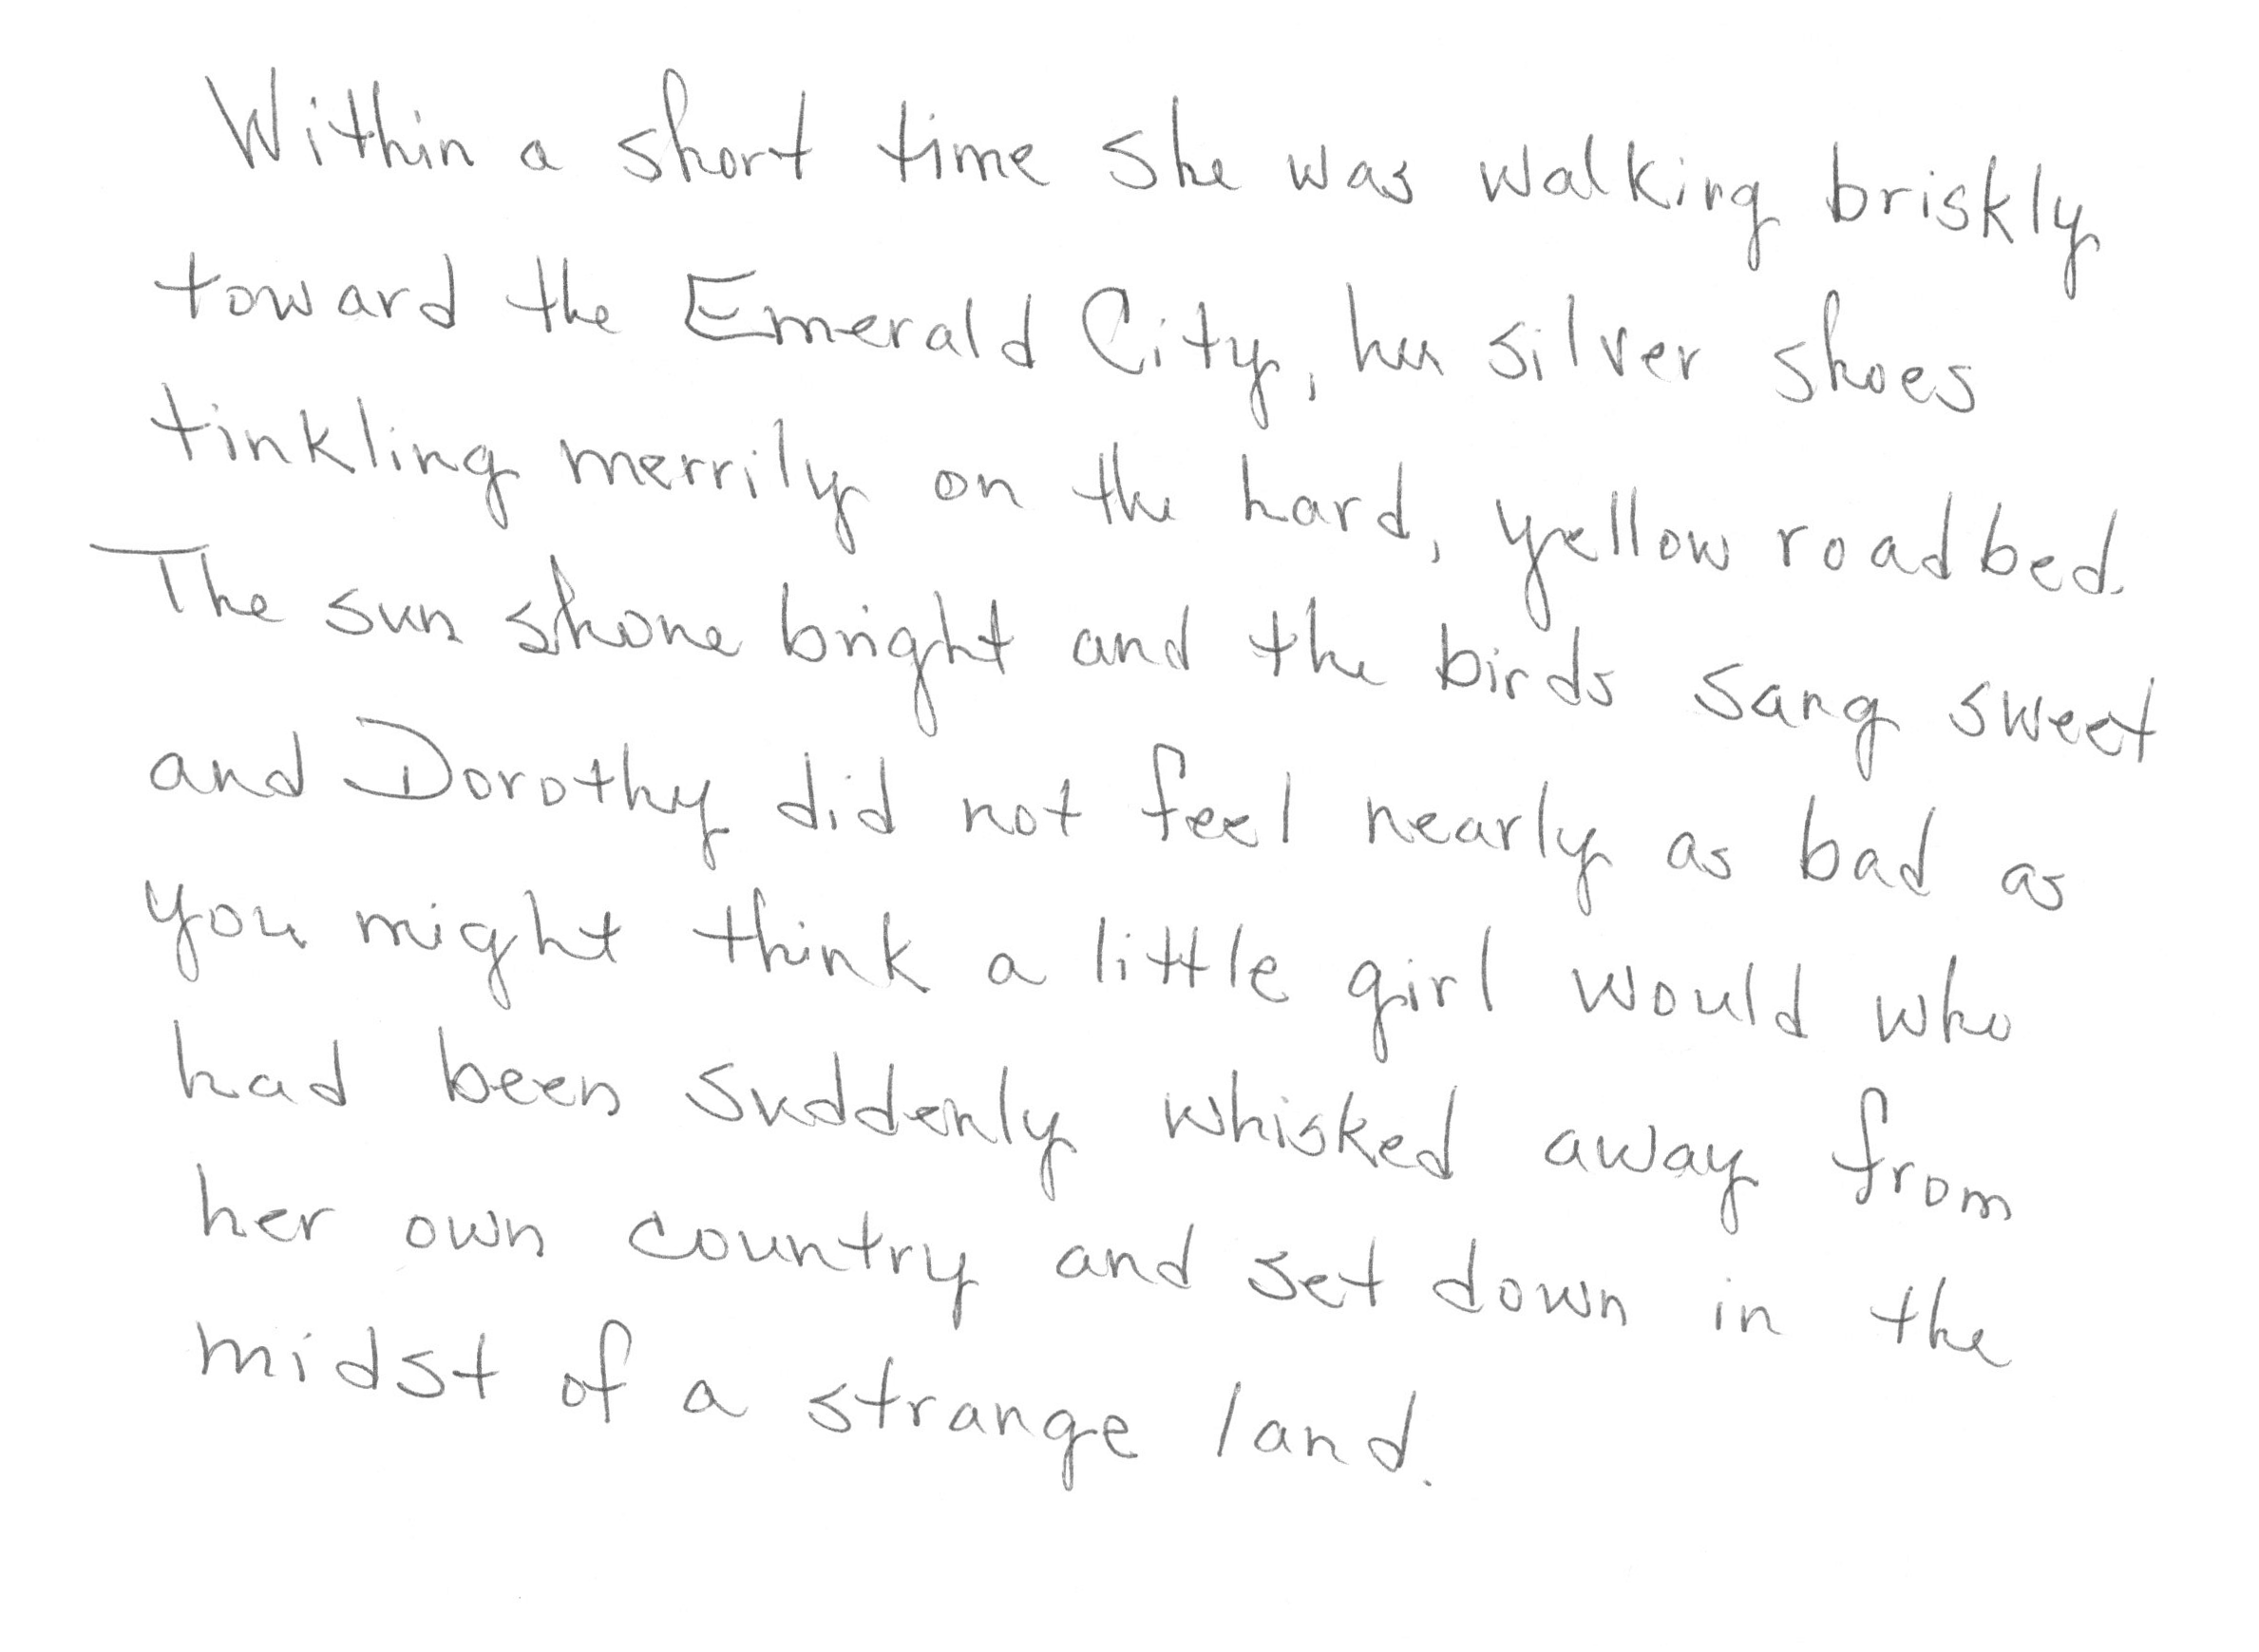 Within a short time she was walking briskly
toward the Emerald City, her silver shoes
tinkling merrily on the hard, yellow roadbed.
The sun shone bright and the birds sang sweet
and Dorothy did not feel nearly as bad as
you might think a little girl would who
had been suddenly whisked away from
her own country and set down in the
midst of a strange land.